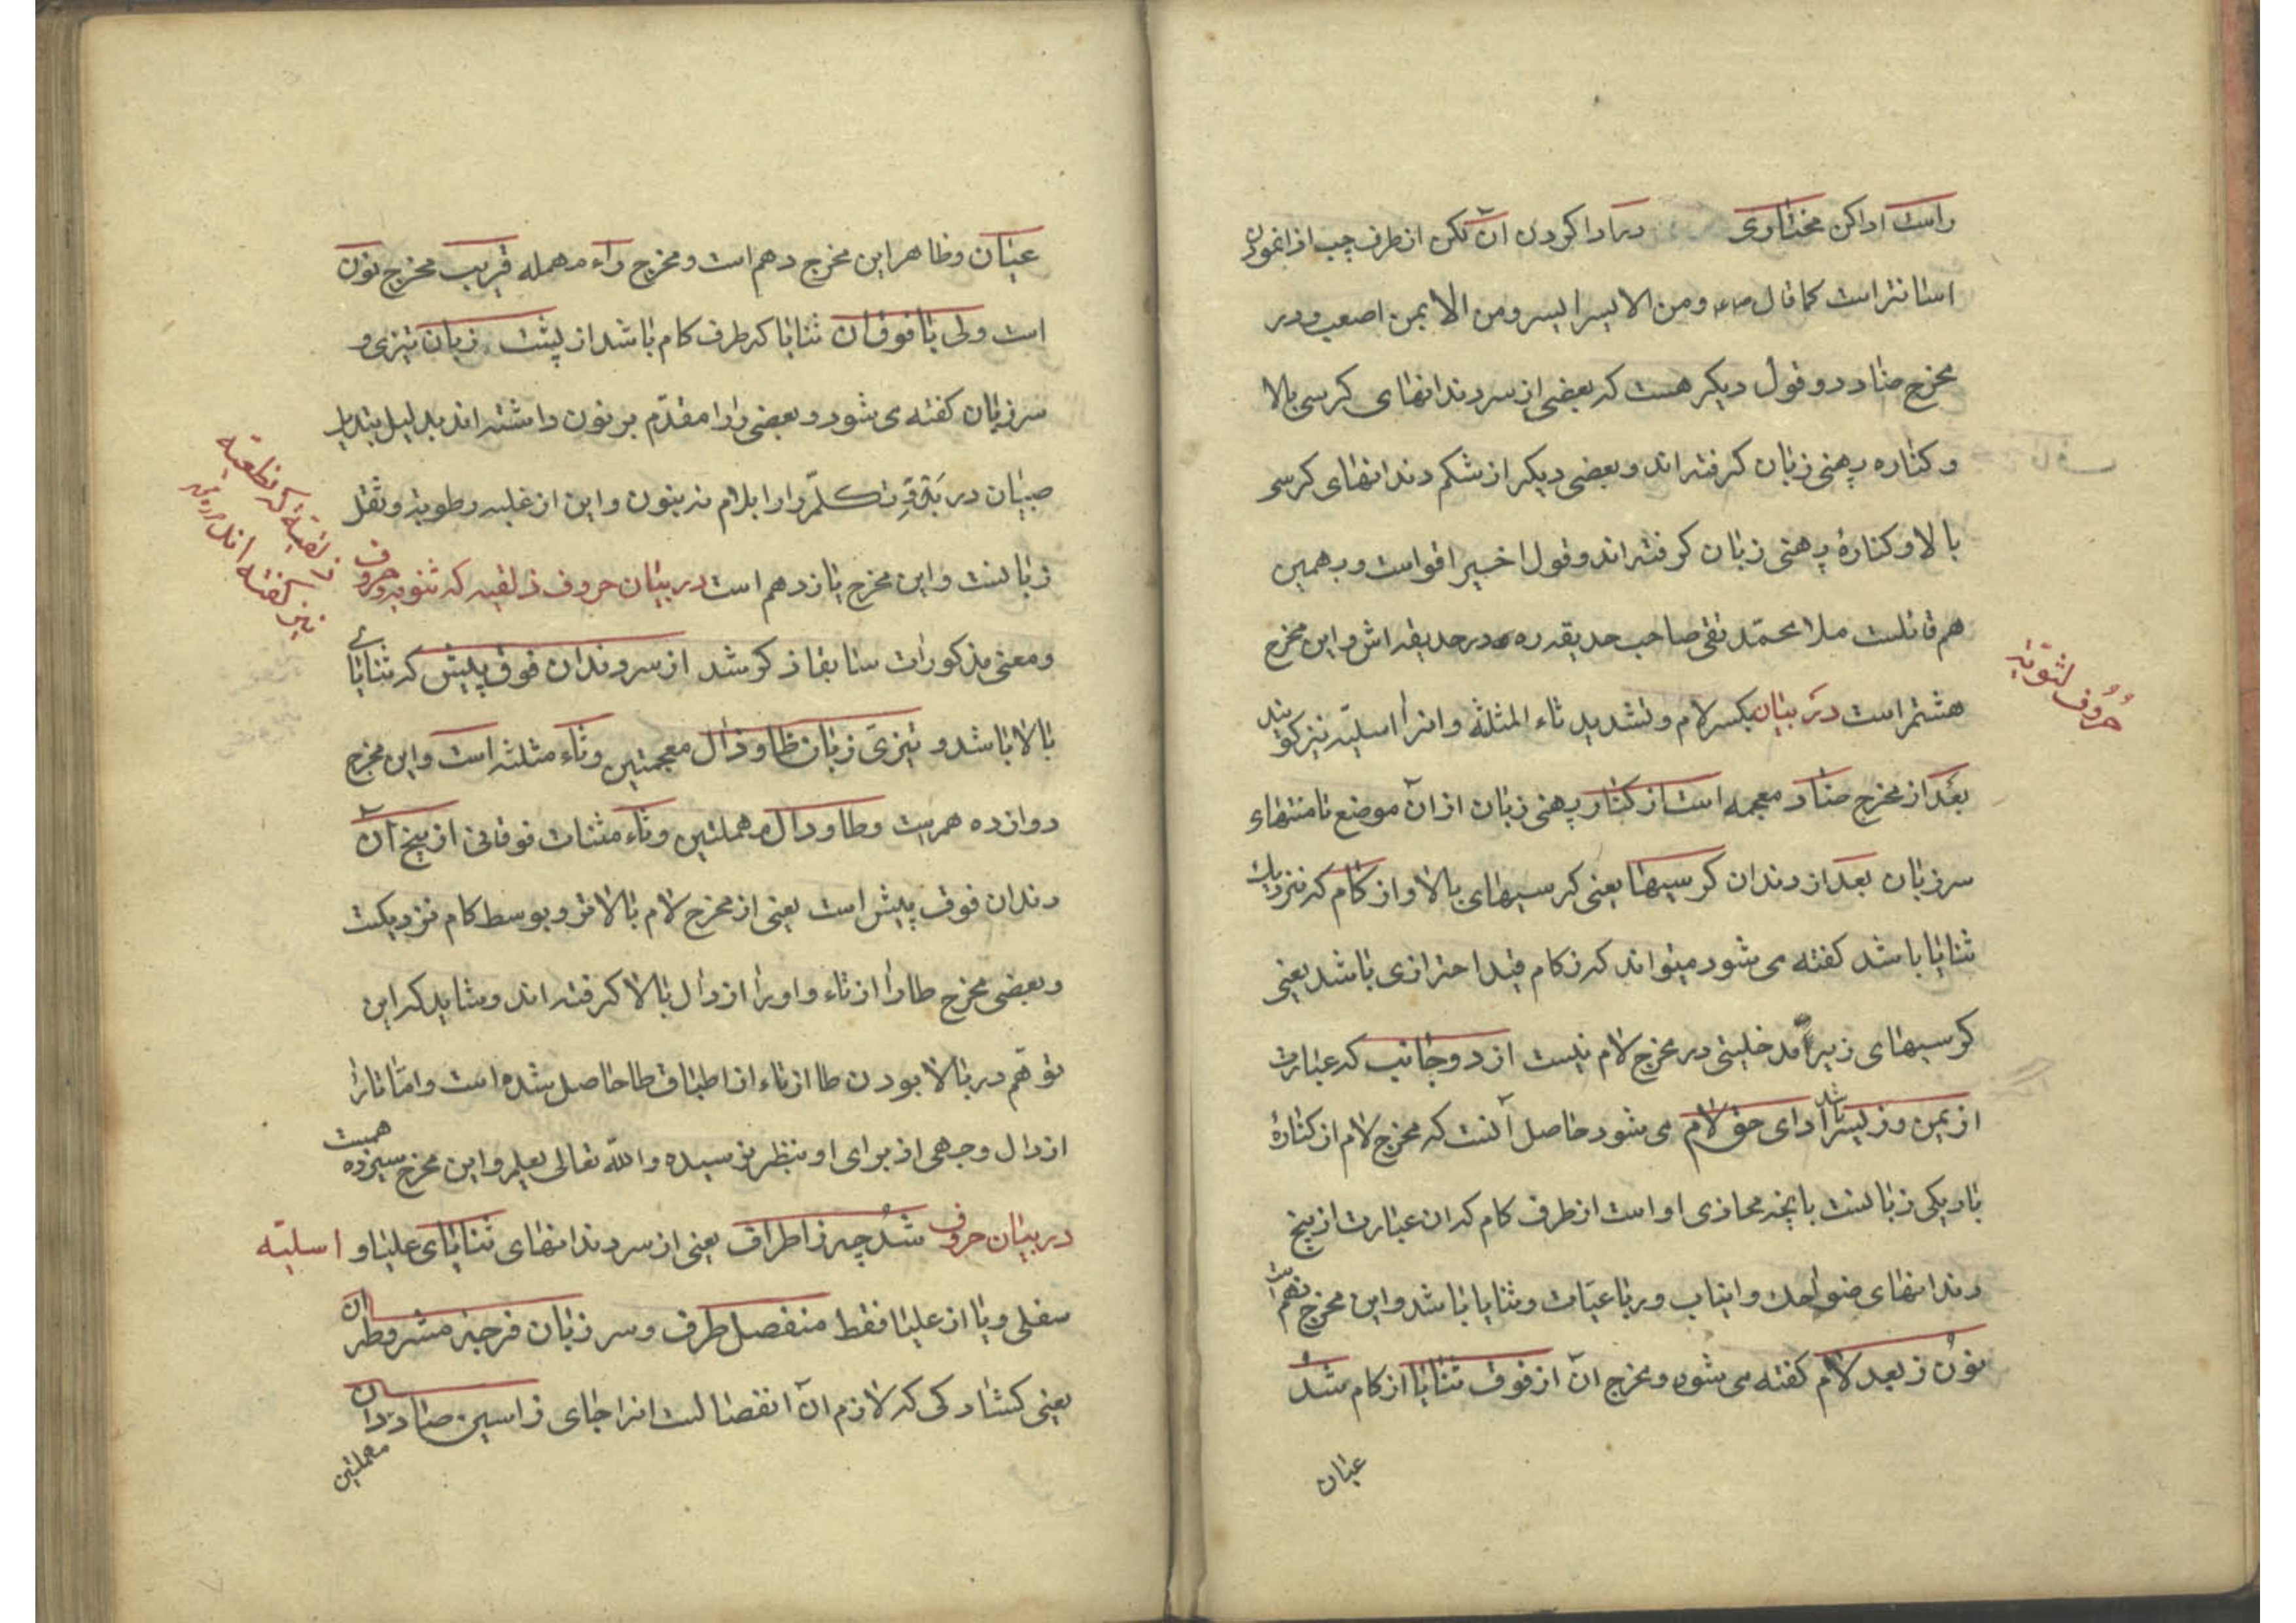 راست ادا کن مختاری در ادا کردن آن لکن از طرف چپ ادا نمودن
اسانتر است کما قال ومن الایسر ایسر ومن الایمن اصعب و در
مخرج ضاد دو قول دیکر هست که بعضی از سر دندانهای کرسی بالا
و کناره پهنی زبان کرفته اند و بعضی دیکر از شکم دندانهای کرسی
بالا و کنارۀ پهنی زبان کرفته اند و قول اخیر اقواست و بهمین
هم قائلست ملا محمّد تقی صاحب حدیقه ره در حدیقه اش و این مخرج
هشتم است در بیان بکسر لام و تشدید ثاء المثلثه و انرا اسلیّه نیز کویند
حُرُوف لثویّه
بعد از مخرج ضاد معجمه است از کنار پهنی زبان از آن موضع تا منتهاء
سر زبان بعد از دندان کرسیها یعنی کرسیهای بالا و از کام که نزدیک
ثنایا باشد کفته می شود میتواند که ز کام قید احترازی باشد یعنی
کرسیهای زیر را مدخلیتی در مخرج لام نیست از دو جانب که عبارت
از یمین وز یسار باشد ادای حق لام می شود حاصل آنست که مخرج لام از کنارۀ
باریکی زبانست بانچه محاذی او است از طرف کام که ان عبارت از بیخ
دندانهای ضواحک و انیاب و رباعیّات و ثنایا باشد و این مخرج نهم است
نون ز بعد لام کفته می شود و مخرج ان از فوق ثنایا از کام شد
عیان
عیان و ظاهر این مخرج دهم است و مخرج راء مهمله قریب مخرج نون
است ولی با فوق ان ثنایا که طرف کام باشد از پشت زبان تیزی و
سر زبان کفته می شود و بعضی را را مقدّم بر نون داشته اند بدلیل تبدیل
صبیان در را را بلام نه بنون و این از غلبه رطوبة و ثقل
زبانست و این مخرج یازدهم است در بیان حروف ذلقیه که ثنویه و حروف
ذلقیّة که نطعیّة
نیز کفته اند
و معنی مذکورات سابقا ذکر شد از سر دندان فوق پیش که ثنایای
بالا باشد و تیزی زبان ظا و ذال معجمتین و ثاء مثلثه است و این مخرج
دوازدهمیت و طا و دال مهملتین و تاء مثنات فوقانی از بیخ آن
دندان فوق پیش است یعنی از مخرج لام بالاتر و بوسط کام نزدیکست
و بعضی مخرج طا را از تاء و او را از دال بالا کرفته اند و شاید که این
توهّم در بالا بودن طا از تاء از اطباق طا حاصل شده است و امّا تا را
از دال وجهی از برای او بنظر نرسیده والله تعالی یعلم و این مخرج سیزدهمیست
در بیان حروف شد چه ز اطراف یعنی از سر دندانهای ثنایای علیا و اسلیّه
سفلی و یا از علیا فقط منفصل طرف و سر زبان فرجة مشروط ان
یعنی کشادکی که لازم آن انفصالست انرا جای ز اسین صاد دان
مهملتین